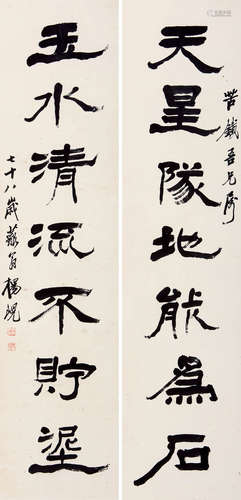 天星隊地能為石
苦鐵吾兄屬
玉水清流不貯埿
七十八歲藐翁楊峴